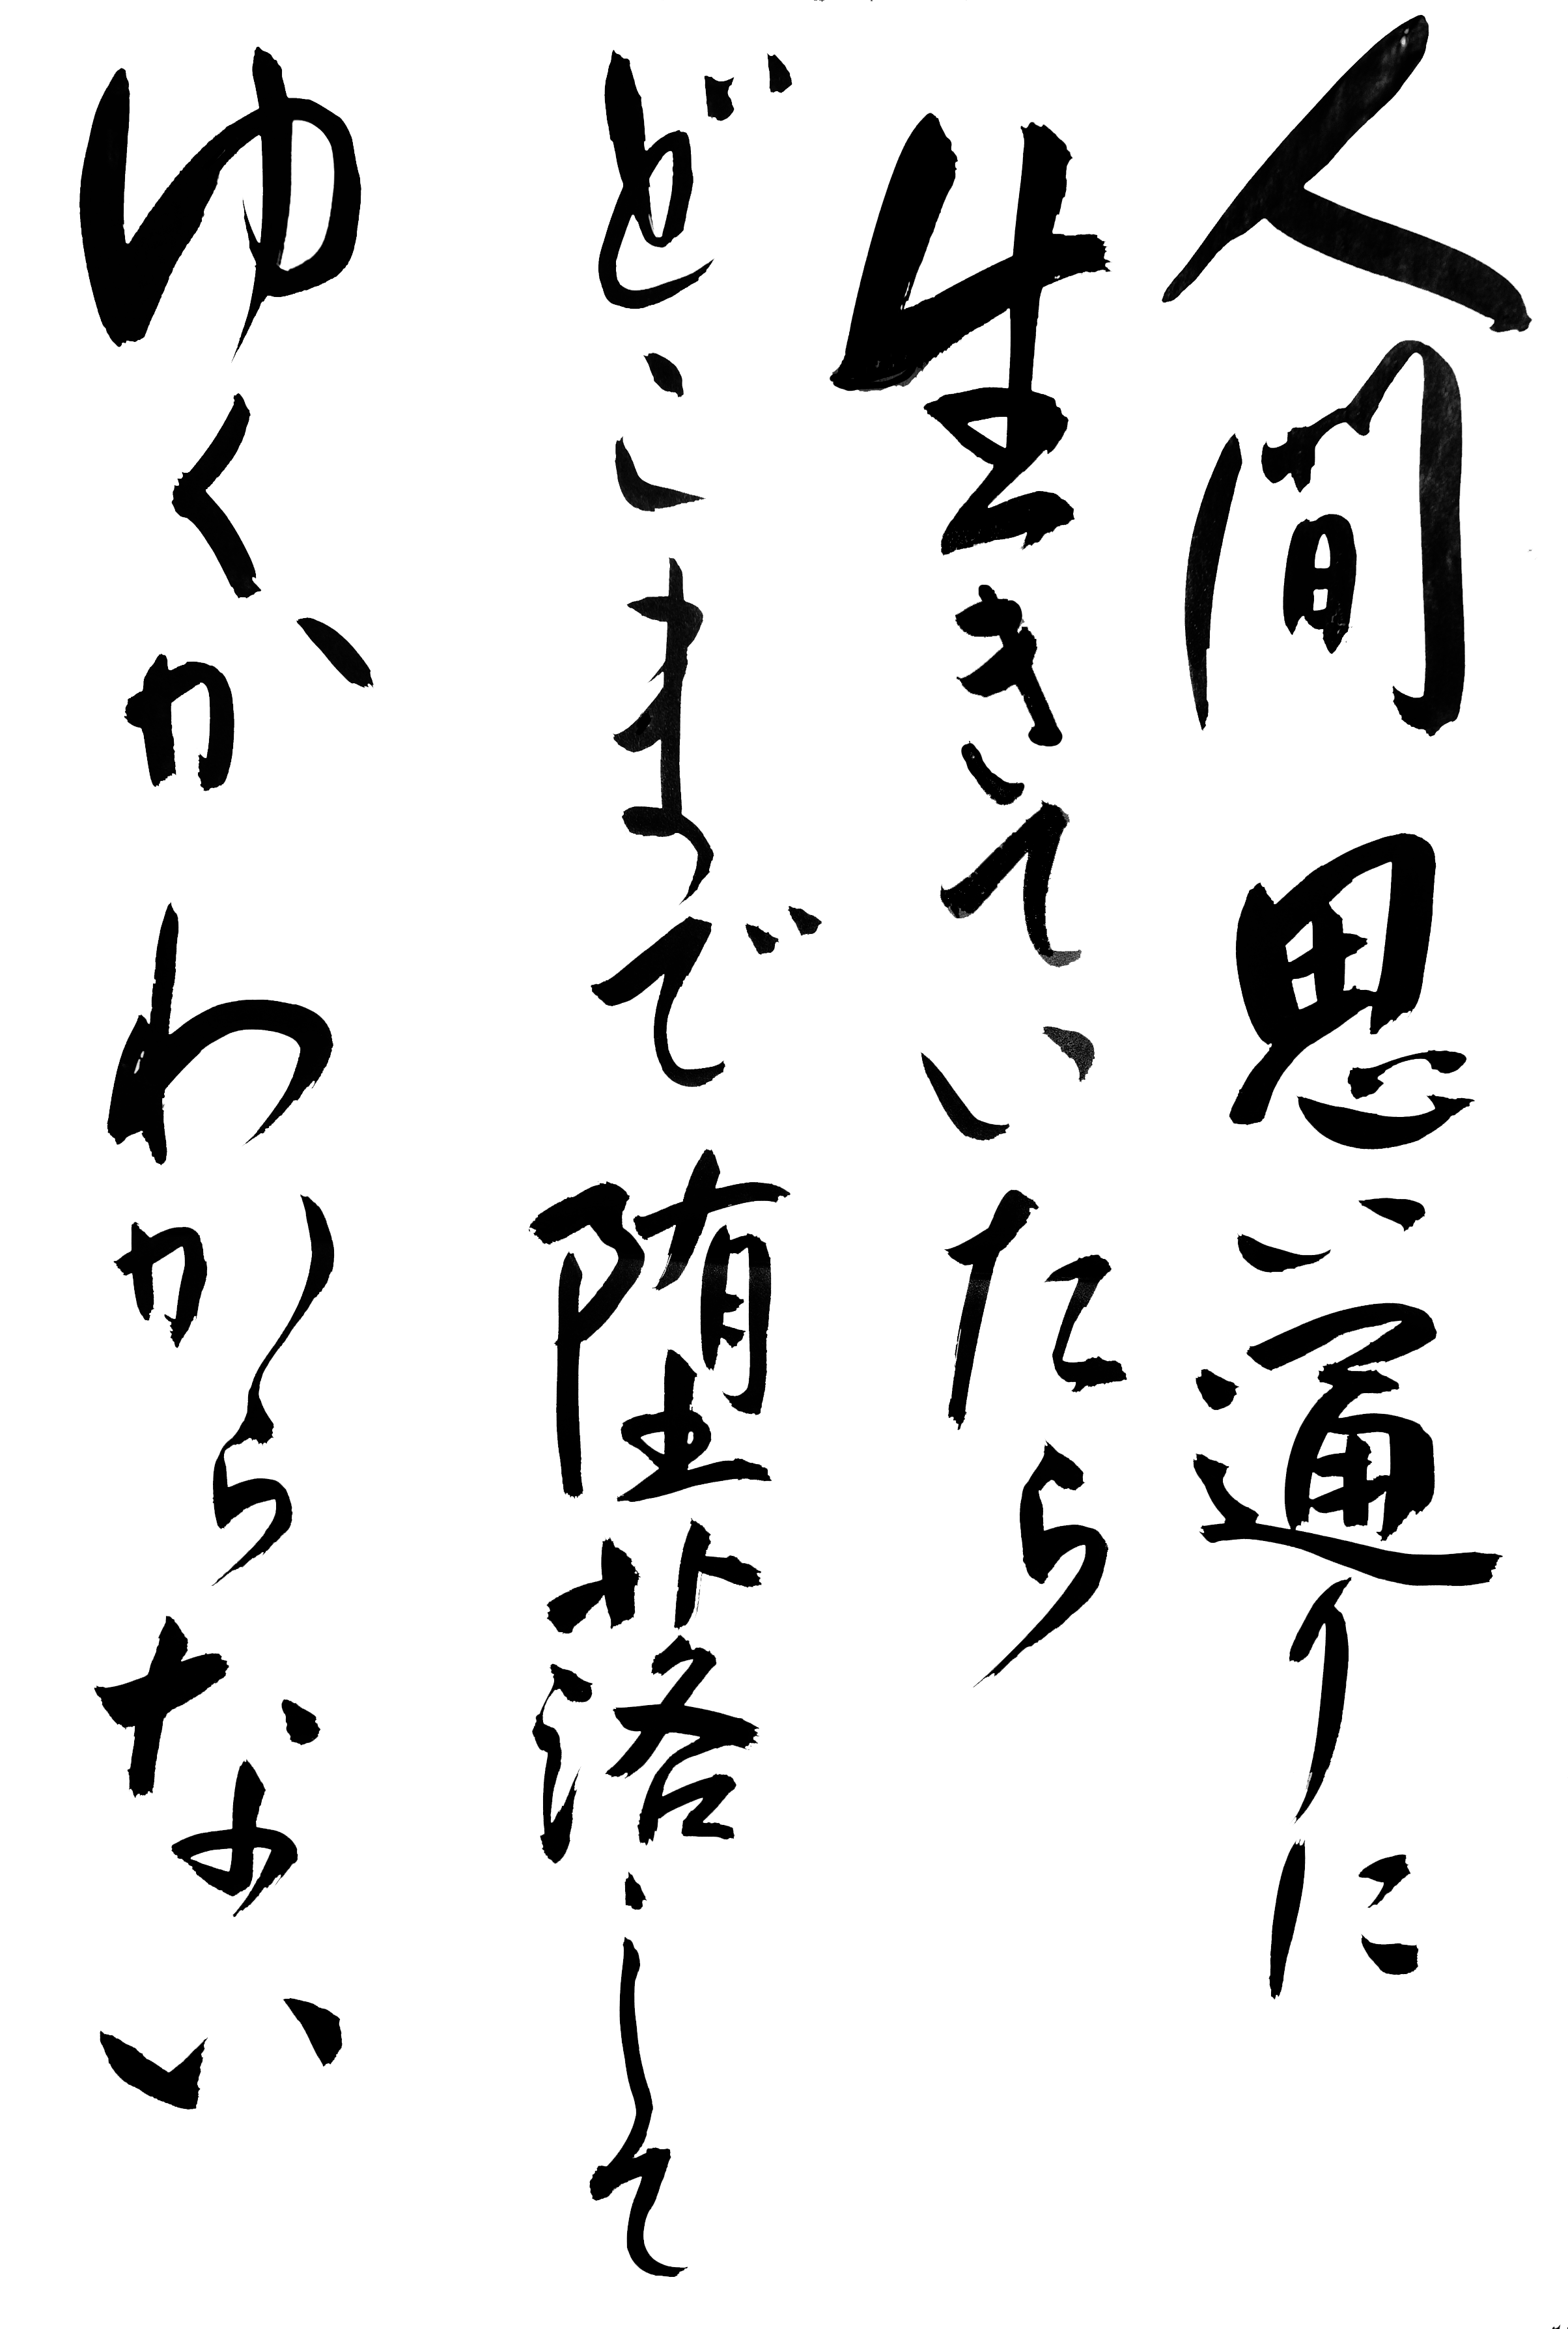 人間思い通りに
生きていたら
どこまで堕落して
ゆくかわからない